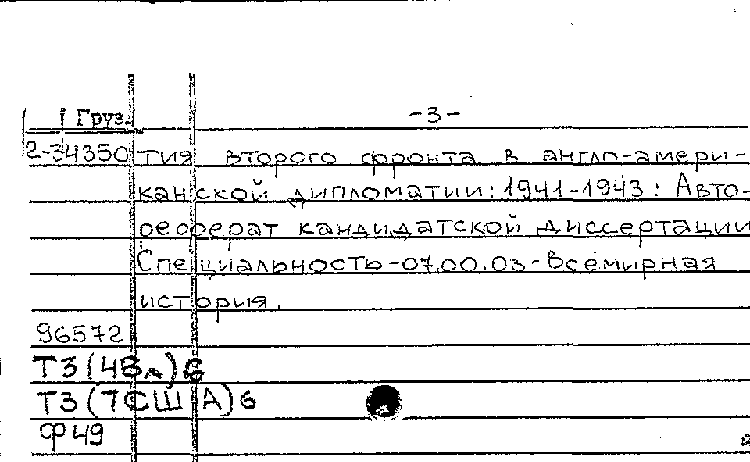 Груз. -3-
2-34350 тия второго фронта в англо-амери-
канской дипломатии: 1941-1943: Авто-
реферат кандидатской диссертации
Специальность-07.00.03-Всемирная
история.
96572
Т3(4Вл)6
Т3(7США)6
Ф49